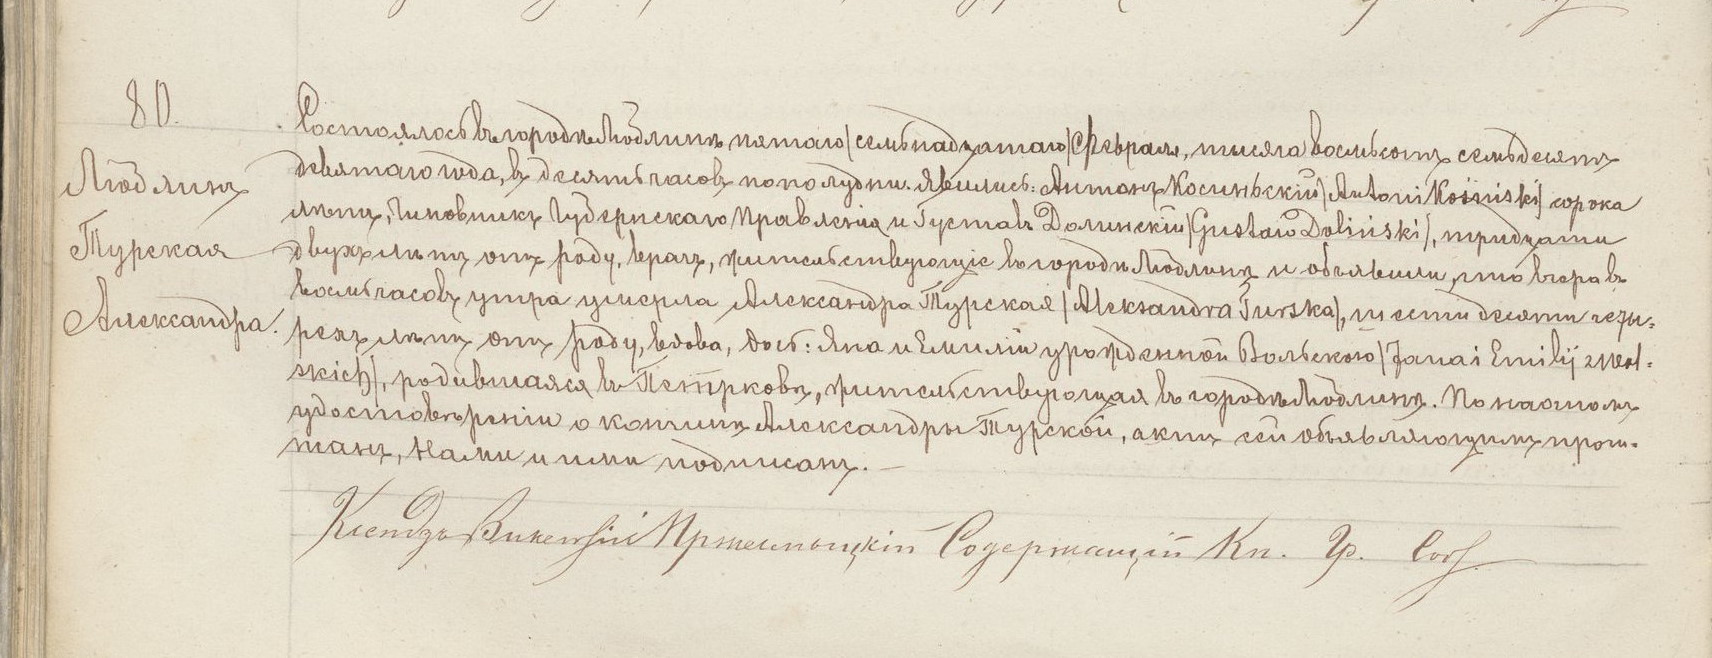 80.
Люблинъ
Турская
Александра.
Состоялось въ городѣ Люблинѣ пятаго /семьнадцатаго/ Февраля, тысяча восемьсотъ семьдесятъ
девятаго года, въ десять часовъ пополудни. Явились: Антонъ Косиньскій /Antoni Kosiński/ сорока
лѣтъ, Чиновникъ Губернскаго Правленія и Густавъ Долинскій /Gustaw Doliński/, тридцати
двухъ лѣтъ отъ роду, врачъ, жительствующіе въ городѣ Люблинѣ и объявили, что вчера въ
восемь часовъ утра умерла Александра Турская /Aleksandra Turska/, шестидесяти четы-
рехъ лѣтъ отъ роду, вдова, дочь: Яна и Емиліи урожденной Вольскою /Jana i Emilij z Wol-
skich/, родившаяся въ Петрковѣ, жительствующая въ городѣ Люблинѣ. По наочномъ
удостовѣреніи о кончинѣ Александры Турской, актъ сей объявляющимъ прочи-
танъ, Нами и ими подписанъ. —
Ксендзъ Викентій Содержащій Кн. Гр. Сост.